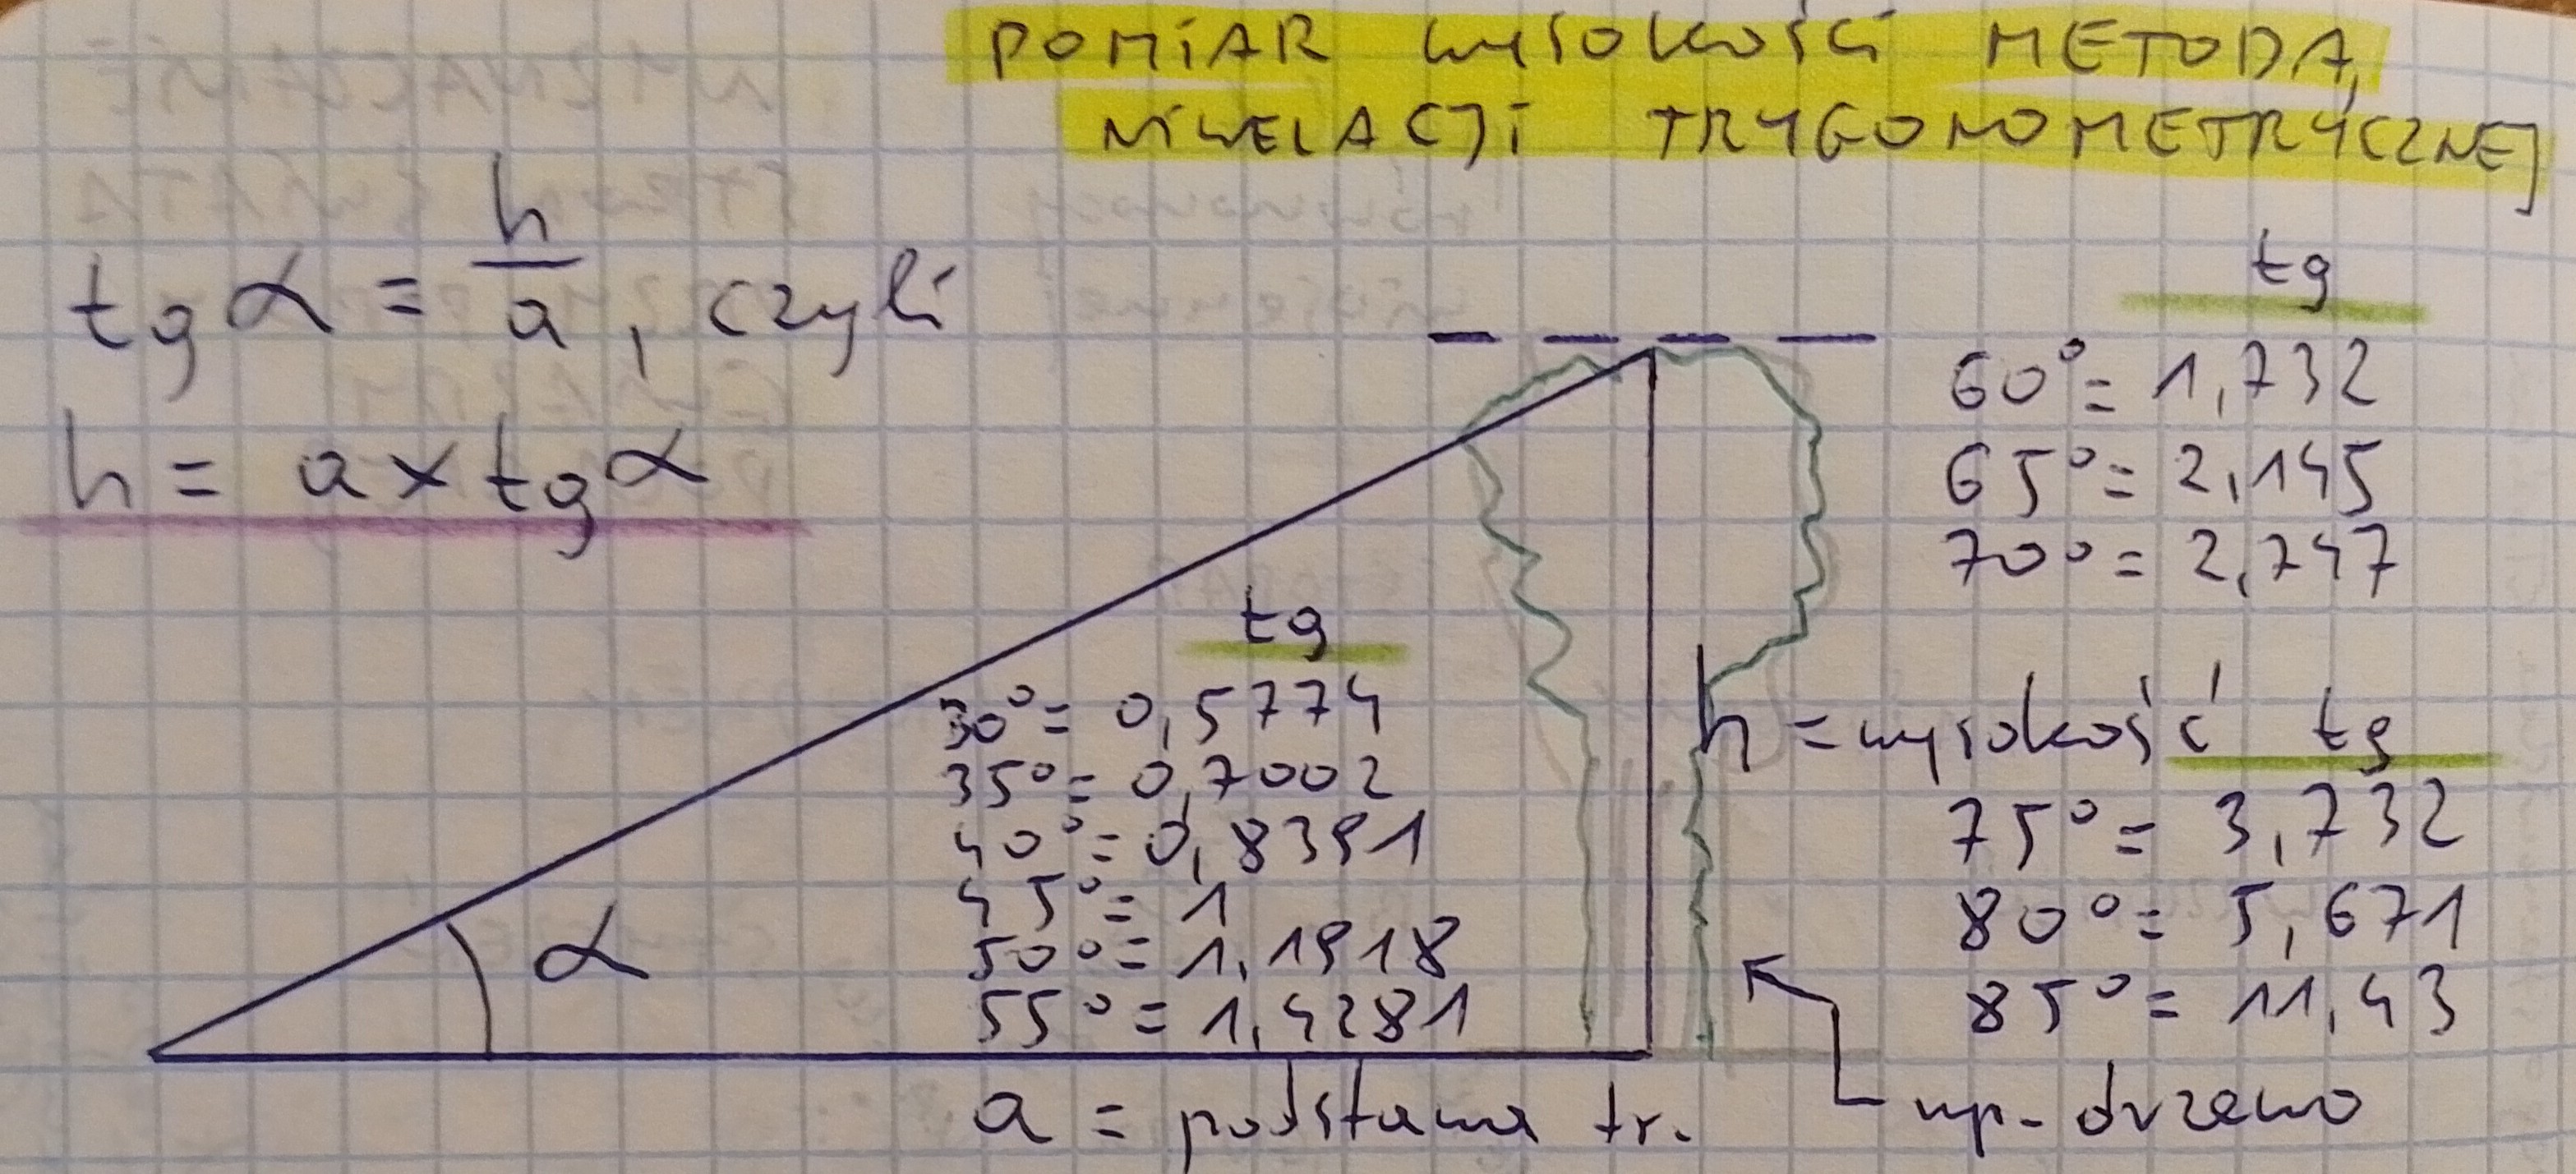 POMIAR wysokości METODĄ
NIWELACJI TRYGONOMETRYCZNEJ
tg α = h/a, czyli
h = a x tg α
tg
60° = 1,732
65° = 2,145
70° = 2,747
tg
30° = 0,5774
35° = 0,7002
40° = 0,8391
45° = 1
50° = 1,1918
55° = 1,4281
h = wysokość
tg
75° = 3,732
80° = 5,671
85° = 11,43
α
a = podstawa tr.
np. drzewo